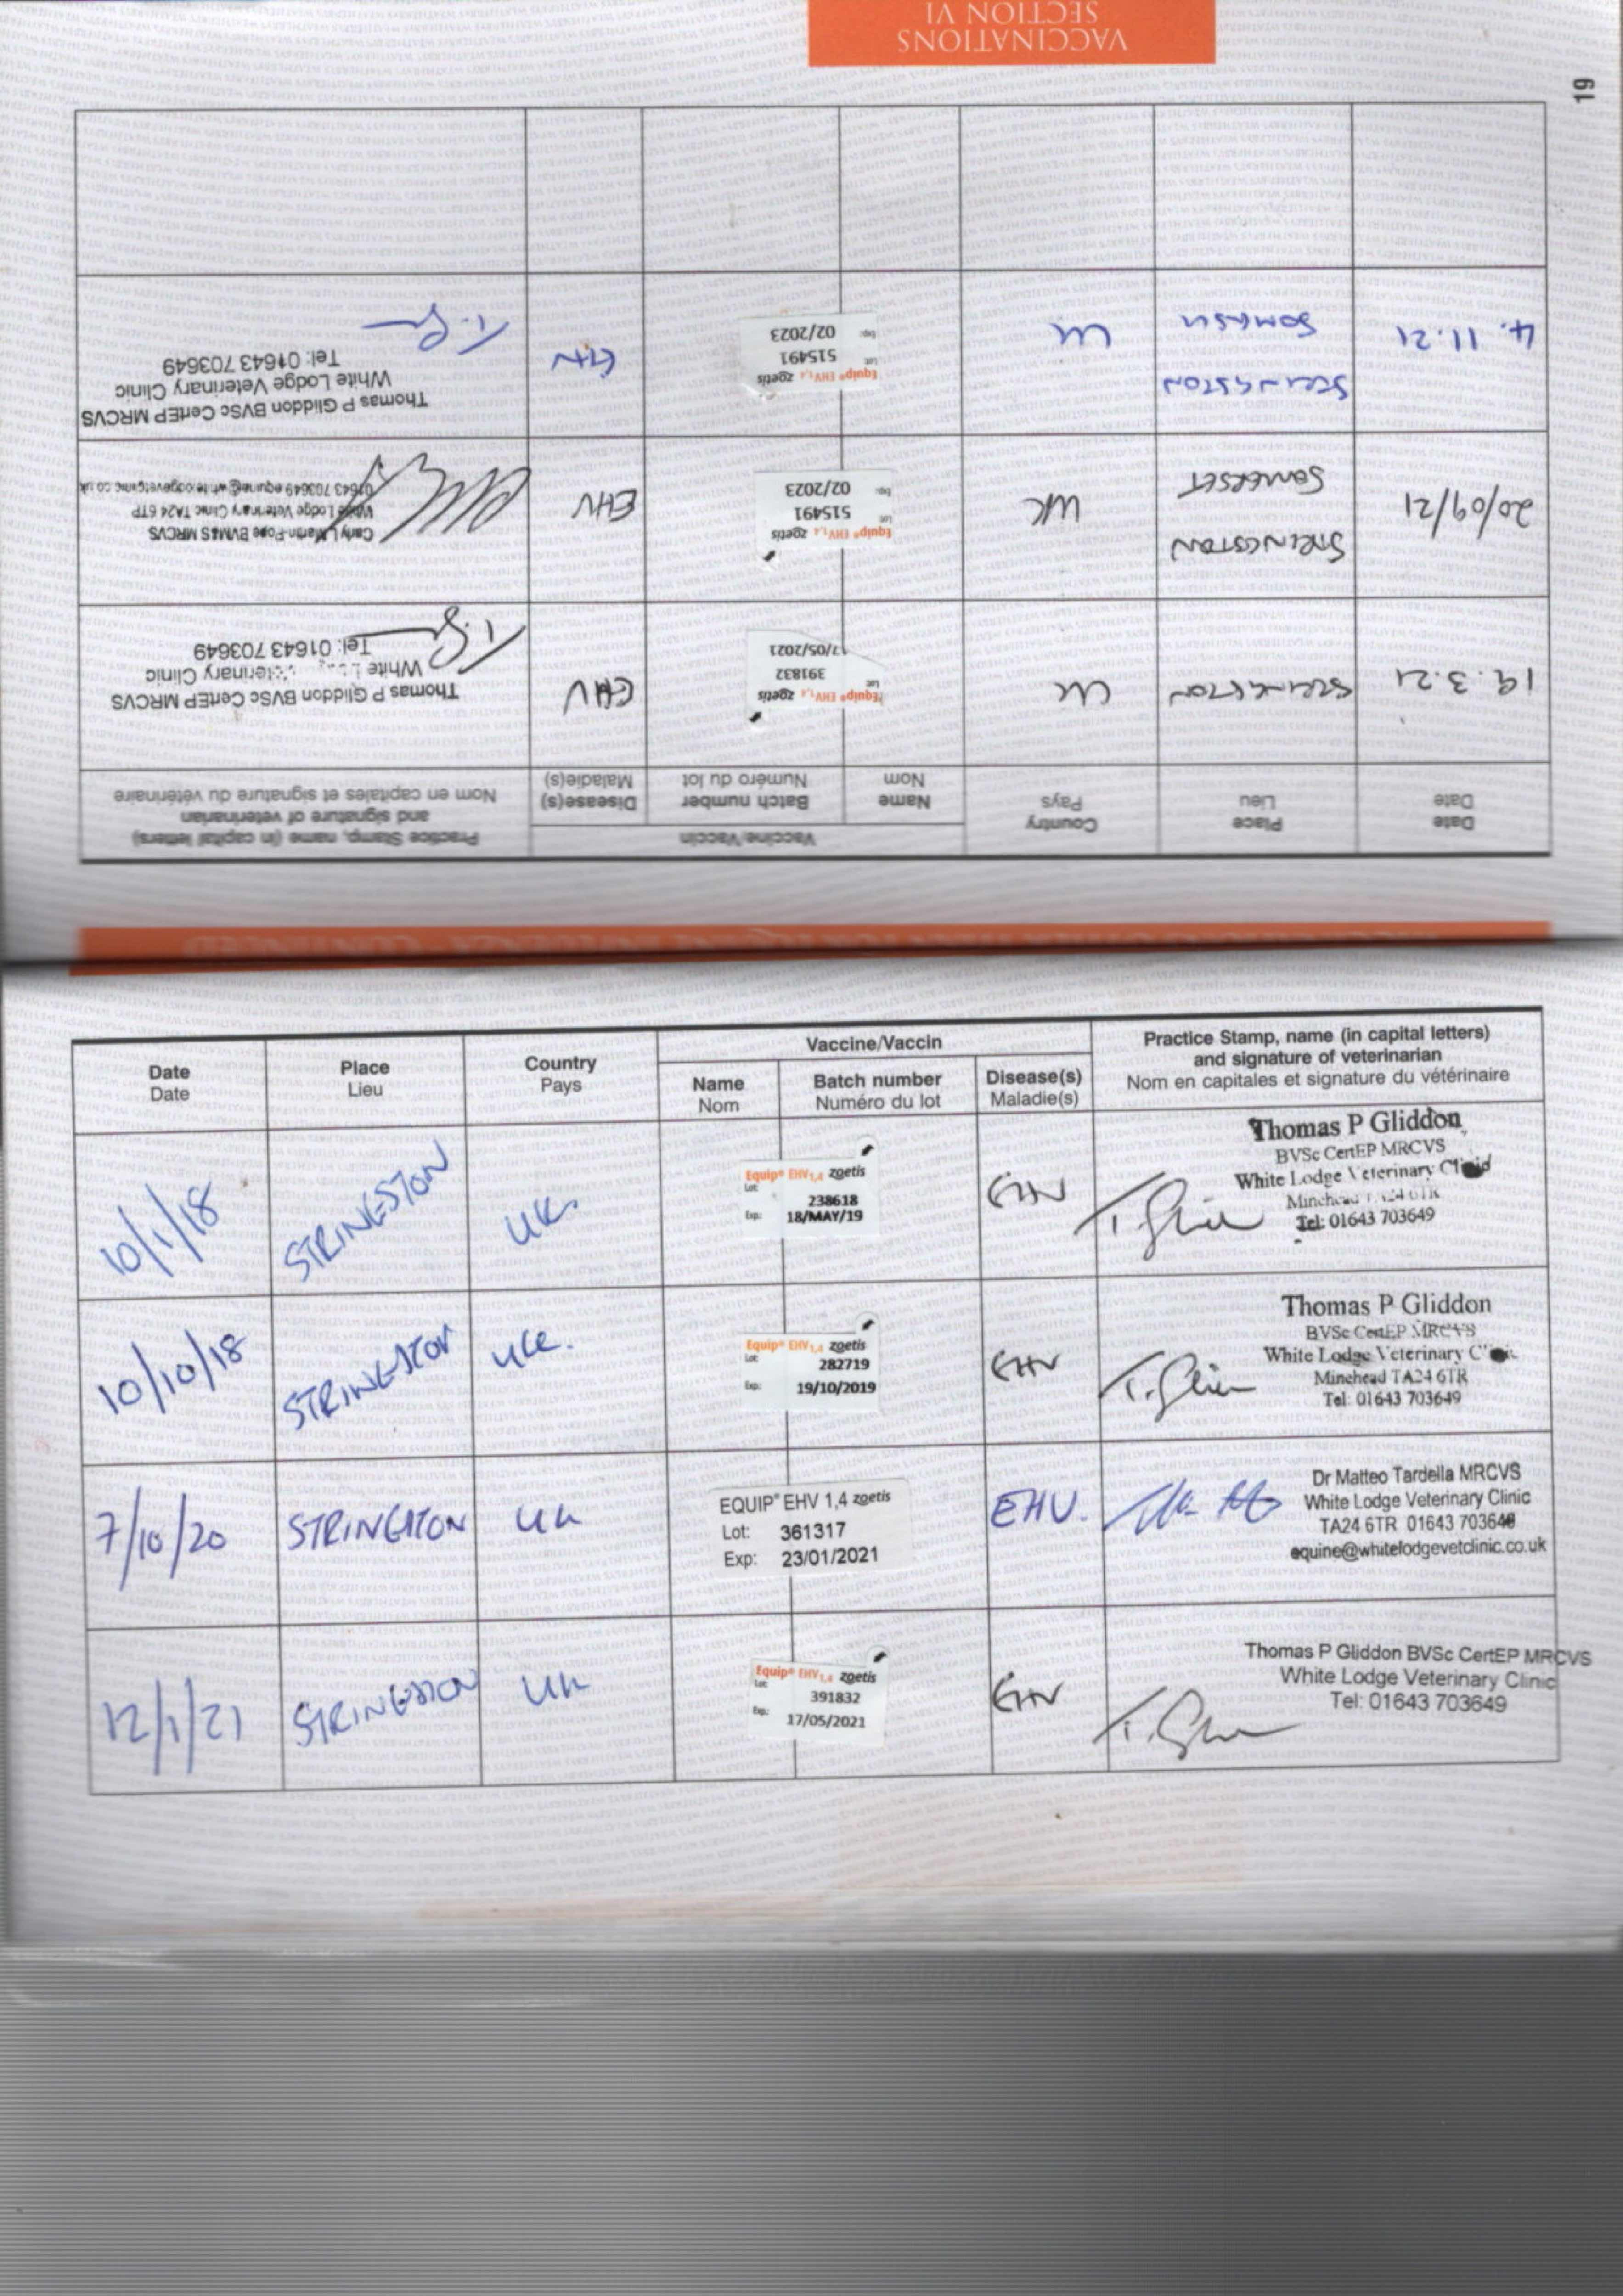 VACCINATIONS
SECTION VI
19
Date
Date
Place
Lieu
Country
Pays
Vaccine/Vaccin
Name
Nom
Batch number
Numéro du lot
Disease(s)
Maladie(s)
Practice Stamp, name (in capital letters)
and signature of veterinarian
Nom en capitales et signature du vétérinaire
19.3.21
STRINGSTON
UK
Equip® EHV1,4 zoetis
Lot:
391832
17/05/2021
EHV
Thomas P Gliddon BVSc CertEP MRCVS
White Veterinary Clinic
Tel: 01643 703649
20/09/21
STRINGSTON
SOMERSET
UK
Equip® EHV1,4 zoetis
Lot:
515491
Exp:
02/2023
EHV
Carly L Martin-Pope BVM&S MRCVS
White Lodge Veterinary Clinic TA24 6TP
01643 703649 equine@whitelodgevetclinic.co.uk
4.11.21
STRINGSTON
SOMERSET
UK
Equip® EHV1,4 zoetis
Lot:
515491
Exp:
02/2023
EHV
Thomas P Gliddon BVSc CertEP MRCVS
White Lodge Veterinary Clinic
Tel: 01643 703649
Date
Date
Place
Lieu
Country
Pays
Vaccine/Vaccin
Name
Nom
Batch number
Numéro du lot
Disease(s)
Maladie(s)
Practice Stamp, name (in capital letters)
and signature of veterinarian
Nom en capitales et signature du vétérinaire
10/1/18
STRINGSTON
UK.
Equip® EHV1,4 zoetis
Lot:
238618
Exp: 18/MAY/19
EHV
Thomas P Gliddon
BVSc CertEP MRCVS
White Lodge Veterinary Clinic
Minehead TA24 6TR
Tel: 01643 703649
10/10/18
STRINGSTON
UK.
Equip® EHV1,4 zoetis
Lot:
282719
Exp: 19/10/2019
EHV
Thomas P Gliddon
BVSc CertEP MRCVS
White Lodge Veterinary Clinic
Minehead TA24 6TR
Tel: 01643 703649
7/10/20
STRINGSTON
UK
EQUIP® EHV 1,4 zoetis
Lot: 361317
Exp: 23/01/2021
EHV.
Dr Matteo Tardella MRCVS
White Lodge Veterinary Clinic
TA24 6TR 01643 703649
equine@whitelodgevetclinic.co.uk
12/1/21
STRINGSTON
UK
Equip® EHV1,4 zoetis
Lot:
391832
Exp:
17/05/2021
EHV
Thomas P Gliddon BVSc CertEP MRCVS
White Lodge Veterinary Clinic
Tel: 01643 703649